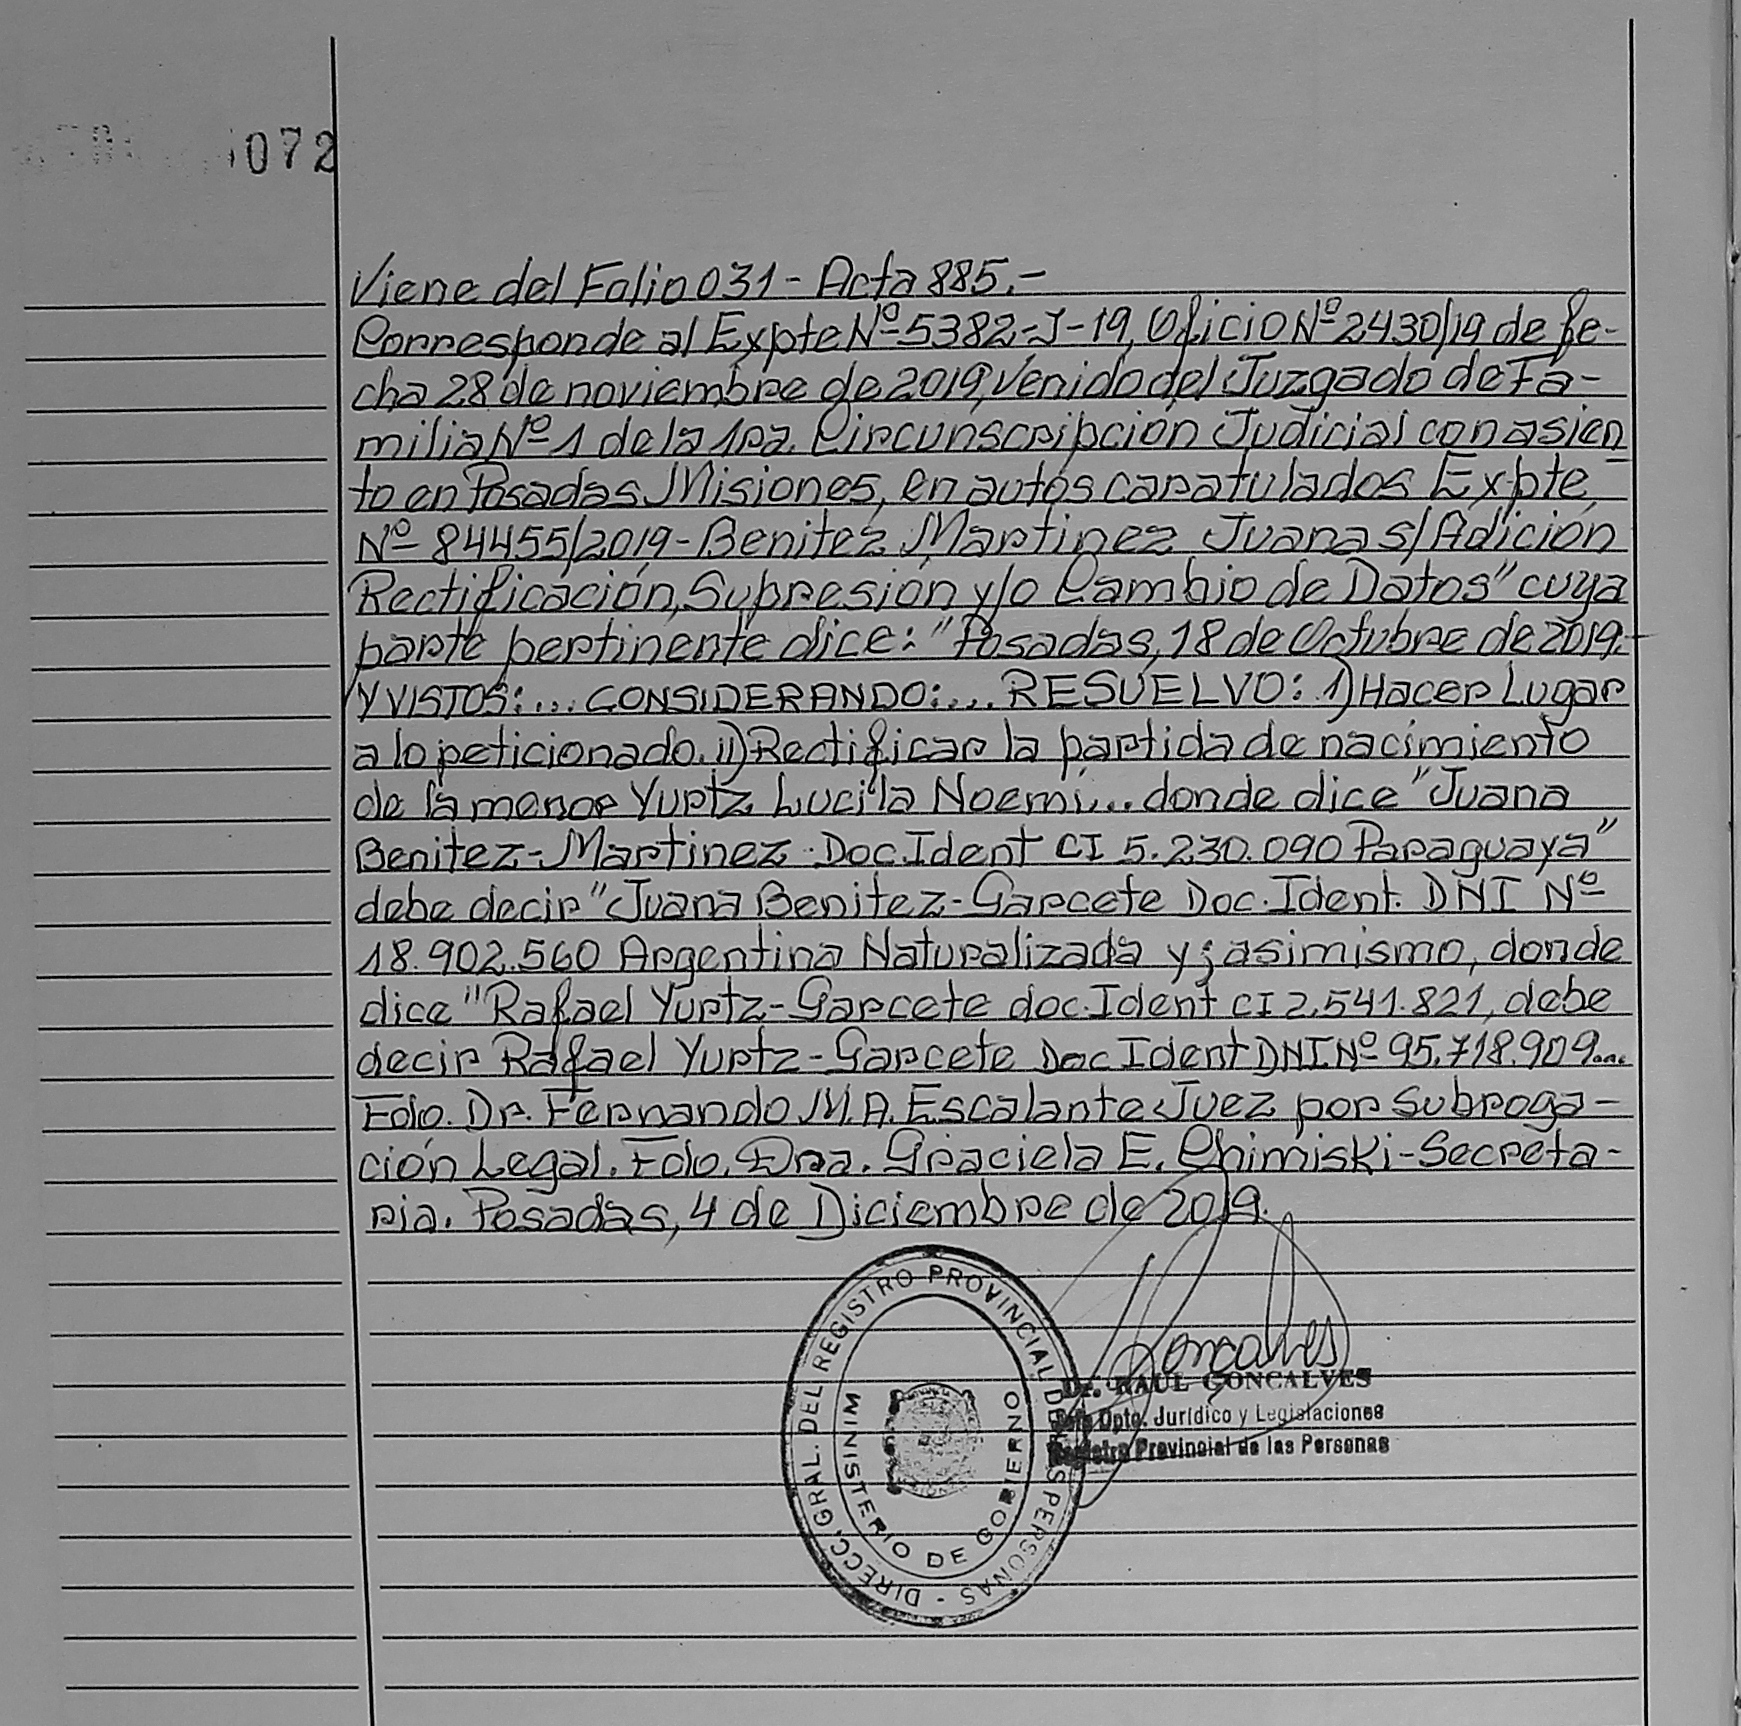 072
Viene del Folio 031 - Acta 885.-
Corresponde al Expte Nº 5382-J-19, Oficio Nº 2430/19 de fe-
cha 28 de noviembre de 2019, venido del Juzgado de Fa-
milia Nº 1 de la 1ra. Circunscripción Judicial con asien
to en Posadas Misiones, en autos caratulados Expte
Nº 84455/2019 - Benitez Martinez Juana s/ Adición
Rectificación, Supresión y/o Cambio de Datos" cuya
parte pertinente dice: "Posadas, 18 de Octubre de 2019.-
Y VISTOS:... CONSIDERANDO:... RESUELVO: 1) Hacer Lugar
a lo peticionado. ii) Rectificar la partida de nacimiento
de la menor Yurtz Lucila Noemi... donde dice "Juana
Benitez-Martinez Doc. Ident CI 5.230.090 Paraguaya"
debe decir "Juana Benitez-Garcete Doc. Ident. DNI Nº
18.902.560 Argentina Naturalizada y; asimismo, donde
dice "Rafael Yurtz-Garcete doc. Ident CI 2.541.821, debe
decir Rafael Yurtz-Garcete Doc Ident DNI Nº 95.718.909...
Fdo. Dr. Fernando M.A. Escalante Juez por Subroga-
ción Legal. Fdo. Dra. Graciela E. Chimiski-Secreta-
ria. Posadas, 4 de Diciembre de 2019.
DIRECC. GRAL. DEL REGISTRO PROVINCIAL DE LAS PERSONAS -
MINISTERIO DE GOBIERNO
Goncalves
Dr. RAUL GONCALVES
Jefe Dpto. Jurídico y Legislaciones
Registro Provincial de las Personas